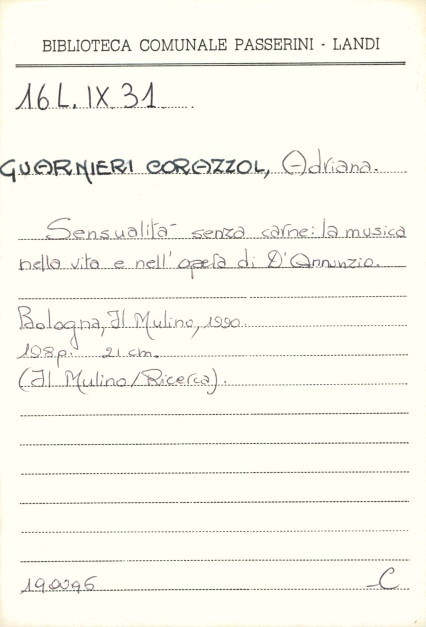 BIBLIOTECA COMUNALE PASSERINI - LANDI
16 L. IX. 31
GUARNIERI CORAZZOL, Adriana.
Sensualità senza carne: la musica
nella vita e nell'opera di D'Annunzio.
Bologna, Il Mulino, 1990.
198 p. 21 cm.
(Il Mulino/Ricerca).
C